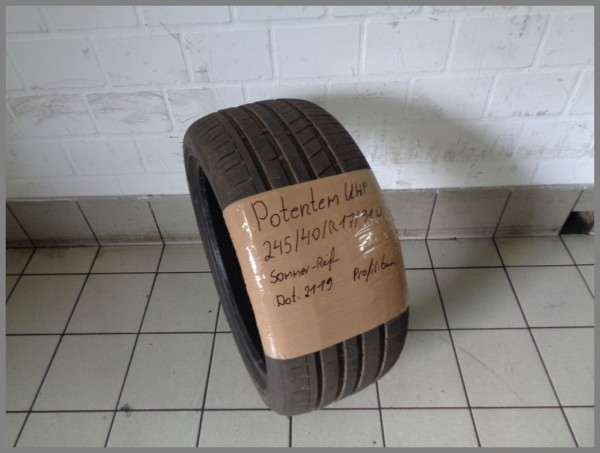 Potentem UHP
245/40/R17/91W
Sommer-Reif
Dot. 2119 Profil. 6mm